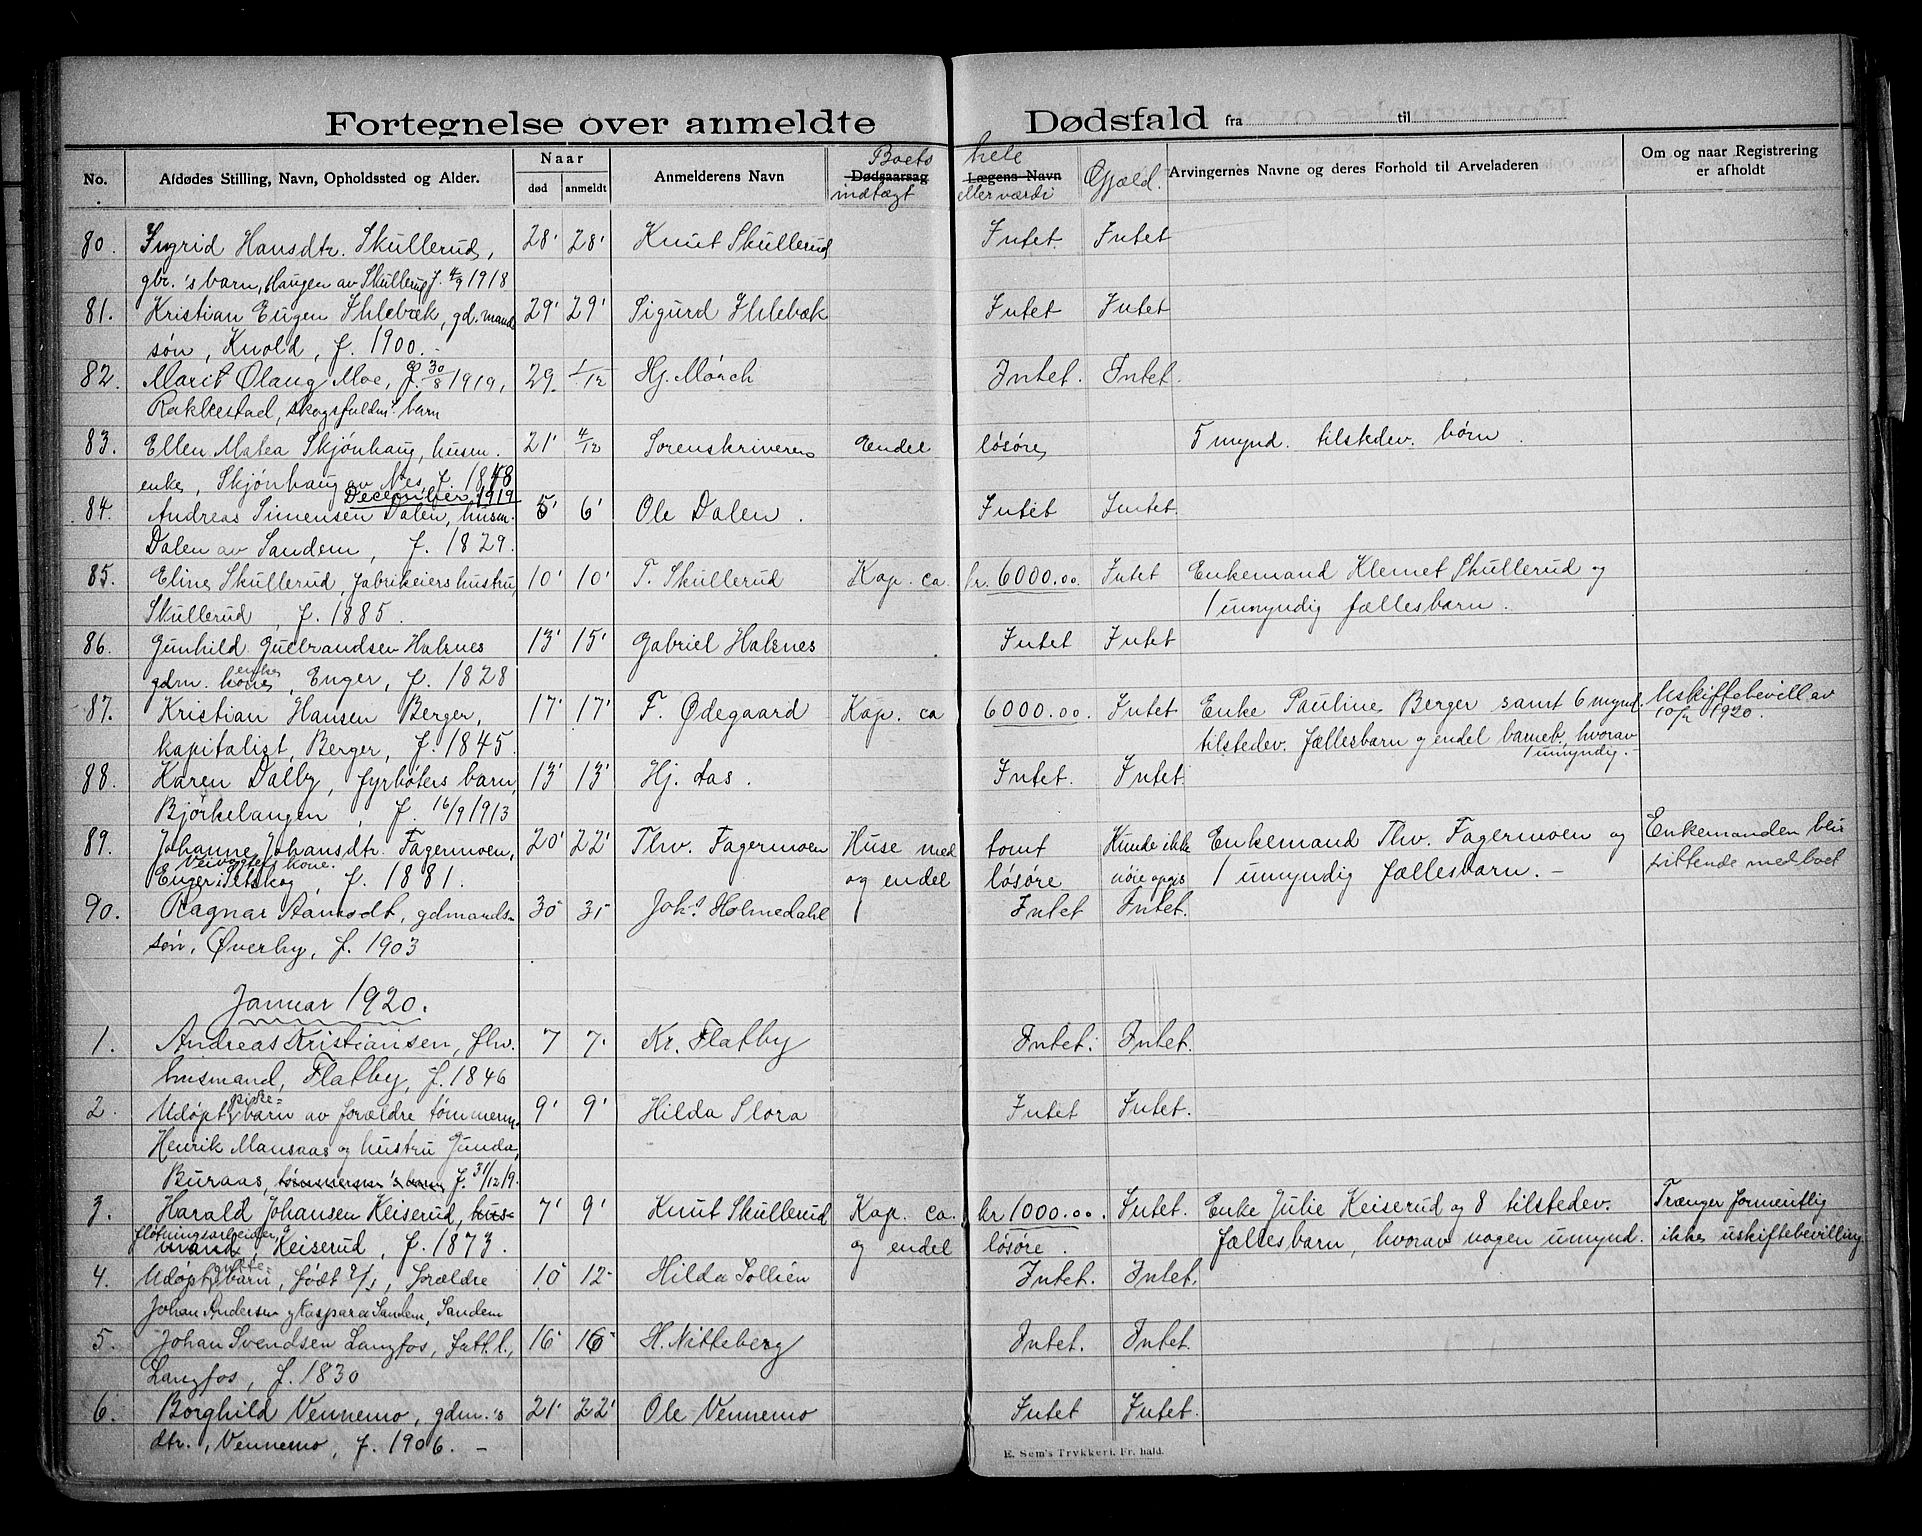 Fortegnelse over anmeldte Dødsfald fra til
No. Afdødes Stilling, Navn, Opholdssted og Alder. Naar død anmeldt Anmelderens Navn Dødsaarsag Boets indtægt Lægens Navn hele eller værdi Gjæld. Arvingernes Navne og deres Forhold til Arveladeren Om og naar Registrering er afholdt
80. Ingrid Hansdtr. Skullerud, 28' 28' Knut Skullerud Intet. Intet
gbr.'s barn, Haugen av Skullerud f. 4/9 1918
81. Kristian Eugen Ihlebæk, gd.mand 29' 29' Sigurd Ihlebæk Intet Intet
søn, Knold, f. 1900.-
82. Marit Olaug Moe, f. 30/8 1919, 29. 1/12 Hj. Mørch Intet. Intet.
Rakkestad, skogsfuldm.s barn
83. Ellen Matea Skjønhaug, husm. 21' 4/12 Sorenskriveren Endel løsøre 5 mynd. tilstedev. børn.
enke, Skjønhaug av Nes, f. 1848
December 1919
84. Andreas Simensen Dalen, husm. 5' 6' Ole Dalen. Intet Intet.
Dalen av Sandem, f. 1829.
85. Eline Skullerud, fabrikeiers hustru, 10' 10' T. Skullerud Kap. ca. kr. 6000.00 Intet Enkemand Klemet Skullerud og
Skullerud, f. 1885. 1 umyndig fællesbarn.
86. Gunhild Gulbrandsen Halsnes 13' 15' Gabriel Halsnes Intet Intet
gdm. kone enke, Enger, f. 1828
87. Kristian Hansen Berger, 17' 17' F. Ødegaard Kap. ca 6000.00. Intet Enke Pauline Berger samt 6 mynd. Uskiftebevill av
kapitalist, Berger, f. 1845. tilstedev. fællesbarn og endel barneb., hvorav 1 umyndig.- 10/2 1920.
88. Karen Dalby, fyrbøters barn, 13' 13' Hj. Aas. Intet. Intet.
Bjørkelangen, f. 16/9 1913
89. Johanne Johansdtr. Fagermoen, 20' 22' Thv. Fagermoen Huse med tomt Kunde ikke Enkemand Thv. Fagermoen og Enkemanden blir
Veivogters kone.
Enger i Setskog, f. 1881. og endel løsøre nøie opgis 1 umyndig fællesbarn.- sittende med boet
90. Ragnar Aamodt, gdmands- 30 31 Johs. Holmedahl Intet Intet.
søn, Øverby, f. 1903
Januar 1920.
1. Andreas Kristiansen, fhv. 7 7. Kr. Flatby Intet. Intet.
husmand, Flatby, f. 1846
2. Udøpt pike-barn av forældre tømmerm. 9' 9' Hilda Slora Intet Intet.
Henrik Mansaas og hustru Gunda,
Buraas, tømmerm's barn f. 31/12 19.
3. Harald Johansen Keiserud, hus- 7' 9' Knut Skullerud Kap. ca. kr 1000.00. Intet. Enke Julie Keiserud og 8 tilstedev. Trænger formentlig
fløtningsarbeider,
mand, Keiserud, f. 1873. og endel løsøre. fællesbarn, hvorav nogen umynd. ikke uskiftebevilling
4. Udøpt gutte-barn, født 9/1, forældre 10 12 Hilda Sollien Intet. Intet.
Johan Andersen og Kaspara Sandem, Sandem
5. Johan Svendsen Langfos, fatt.l., 16 16 H. Nitteberg Intet. Intet.
Langfos, f. 1830
6. Borghild Vennemo, gdm.'s 21' 22' Ole Vennemo Intet Intet.
dtr., Vennemo, f. 1906.-
E. Sem's Trykkeri, Fr. hald.